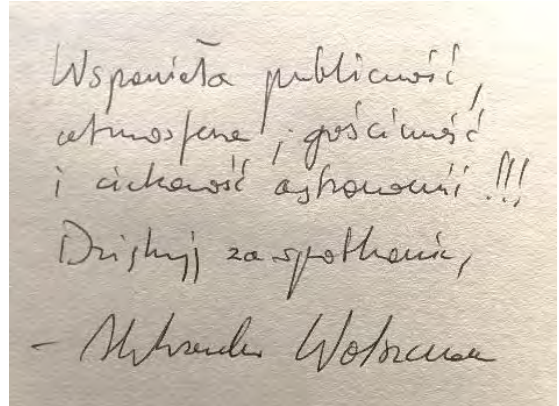 Wspaniała publiczność,
atmosfera, gościnność
i ciekawość astronomii !!!
Dziękuję za spotkanie,
- Aleksander Wolszczan